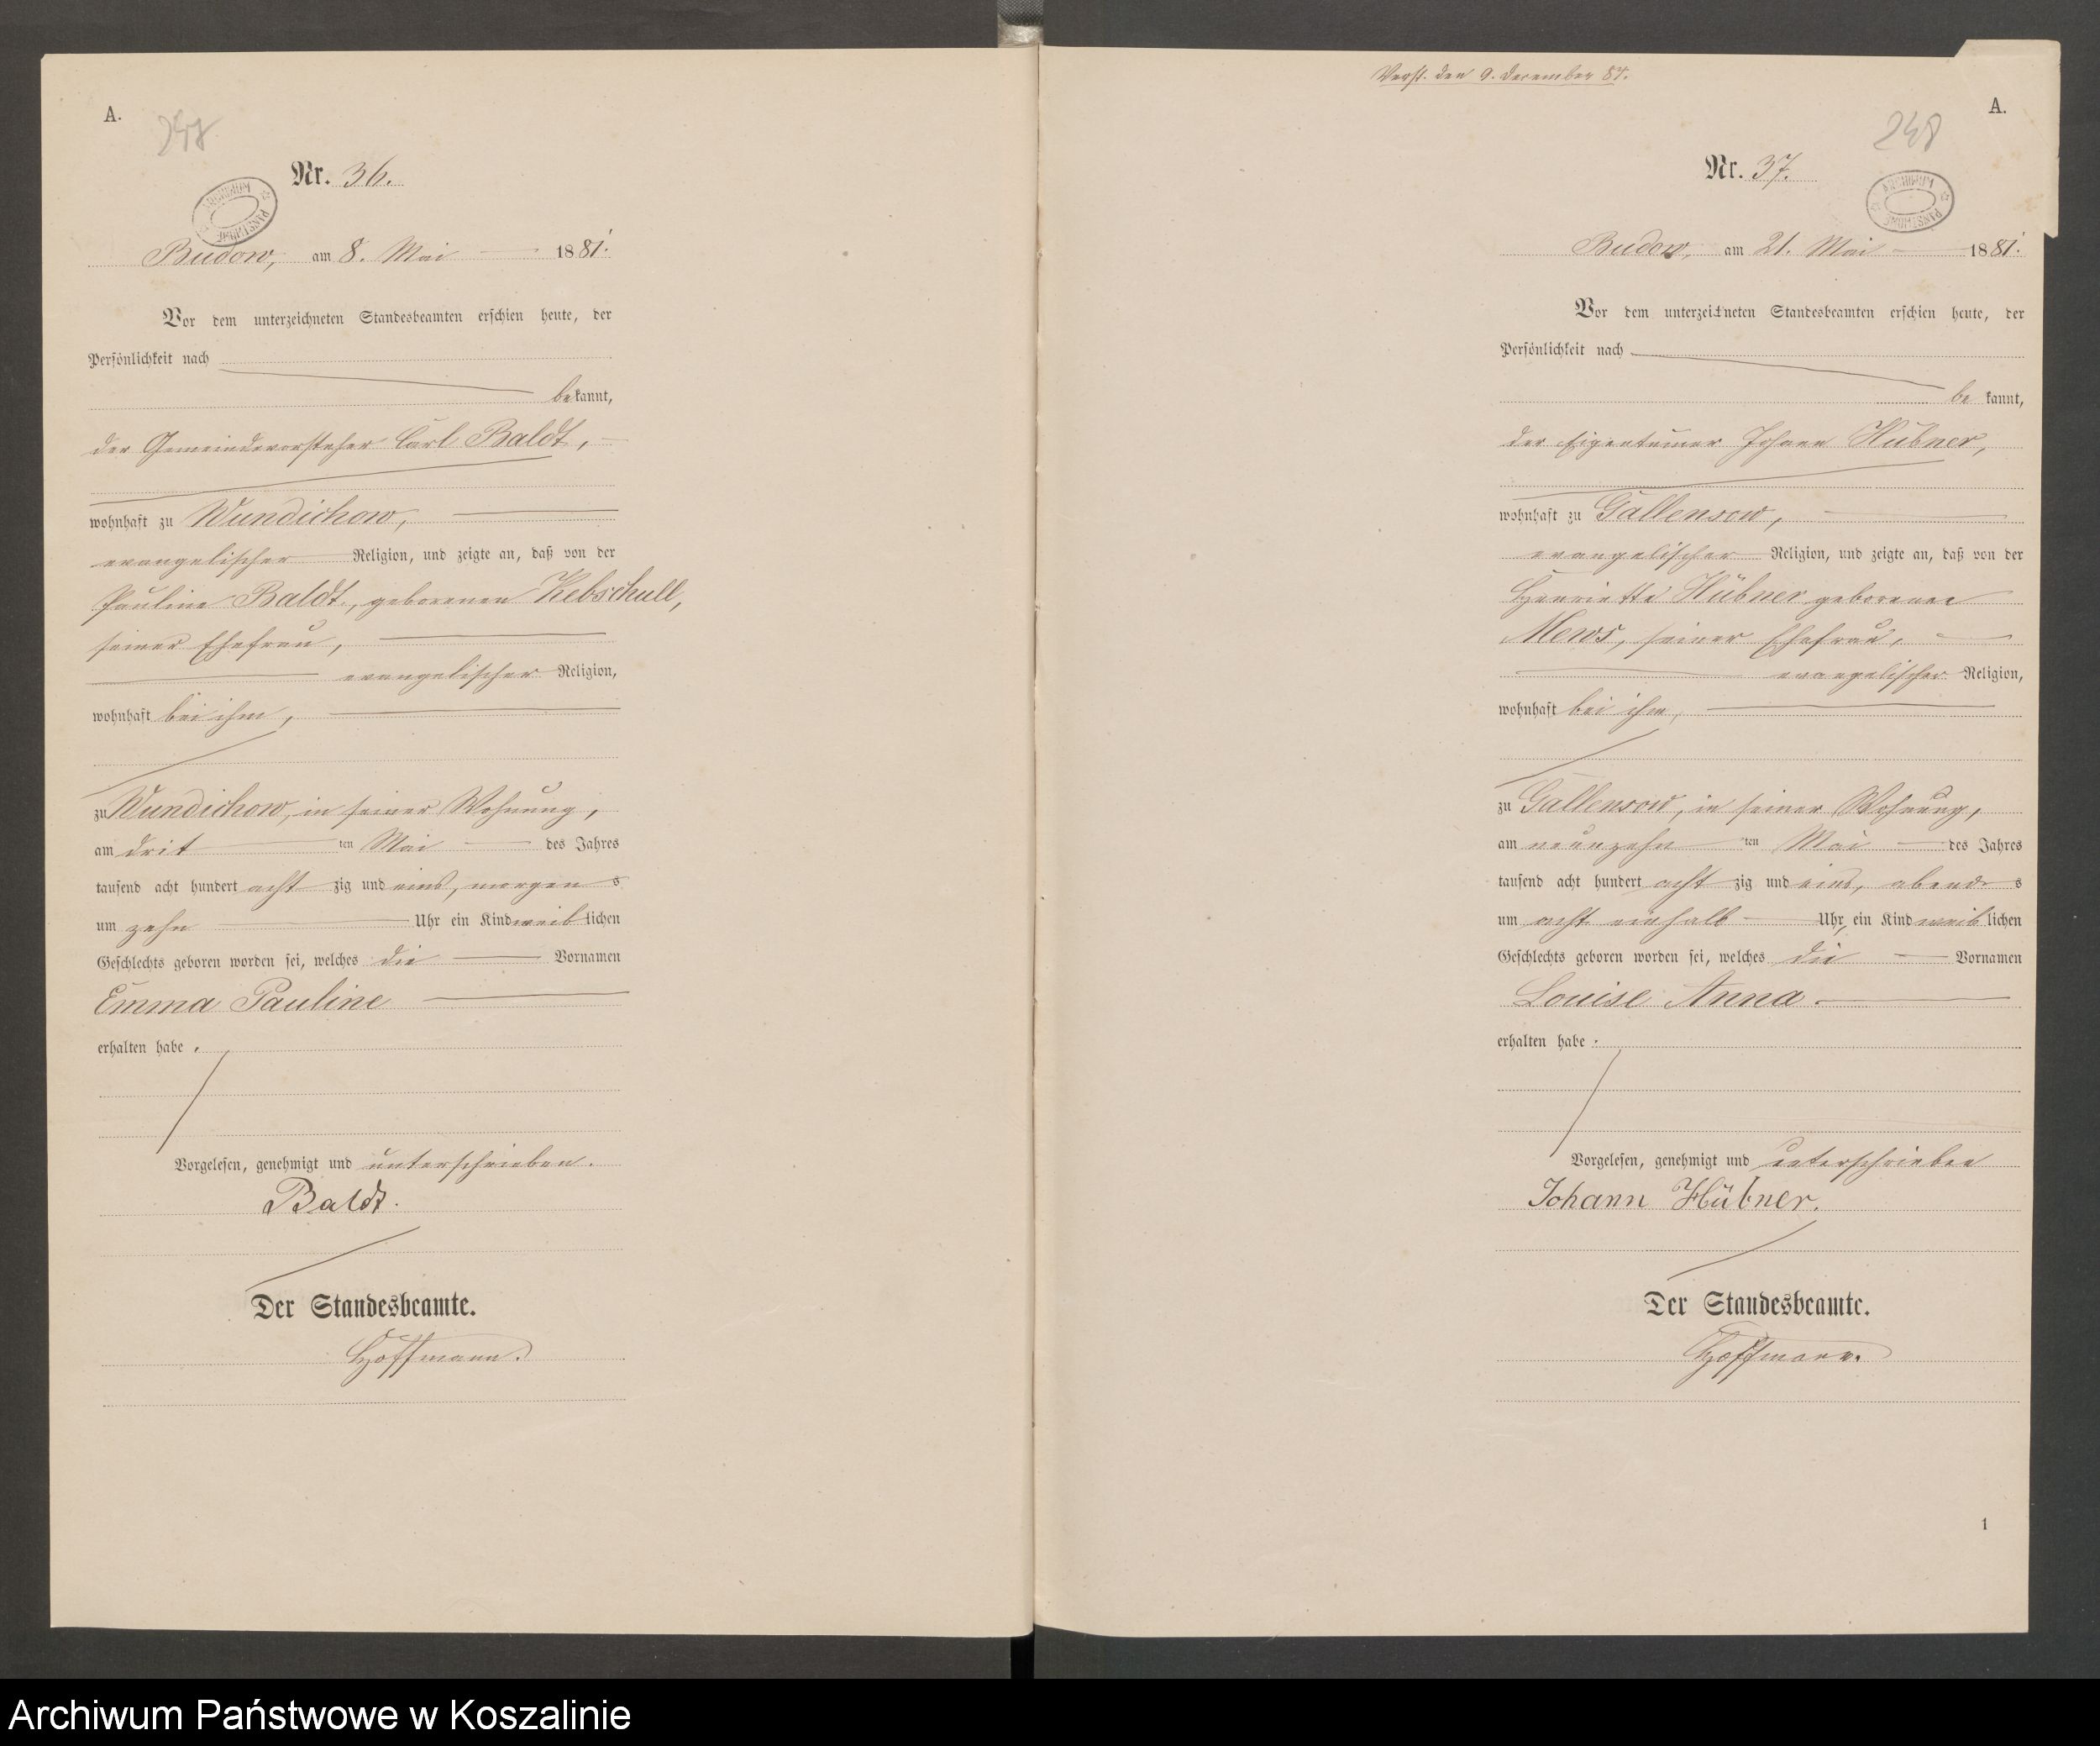 A.
Nr. 36.
Budow, am 8. Mai 1881.
Vor dem unterzeichneten Standesbeamten erschien heute, der
Persönlichkeit nach
bekannt,
der Gemeindevorsteher Carl Baldt,
wohnhaft zu Wundichow,
evangelischer Religion, und zeigte an, daß von der
Pauline Baldt, geborenen Kebschull,
seiner Ehefrau,
evangelischer Religion,
wohnhaft bei ihm,
zu Wundichow, in seiner Wohnung,
am drit ten Mai des Jahres
tausend acht hundert acht zig und eins, morgens
um zehn Uhr ein Kind weiblichen
Geschlechts geboren worden sei, welches die Vornamen
Emma Pauline
erhalten habe.
Vorgelesen, genehmigt und unterschrieben.
Baldt.
Der Standesbeamte.
Hoffmann.
Verst. den 9. December 87.
A.
248
Nr. 37.
ARCHIWUM PAŃSTWOWE
Budow, am 21. Mai 1881.
Vor dem unterzeichneten Standesbeamten erschien heute, der
Persönlichkeit nach
be kannt,
der Eigentümer Johann Hübner,
wohnhaft zu Gallensow,
evangelischer Religion, und zeigte an, daß von der
Henriette Hübner geborenen
Mews, seiner Ehefrau,
evangelischer Religion,
wohnhaft bei ihm,
zu Gallensow, in seiner Wohnung,
am neunzehn ten Mai des Jahres
tausend acht hundert acht zig und eins, abends
um acht einhalb Uhr, ein Kind weiblichen
Geschlechts geboren worden sei, welches die Vornamen
Louise Anna
erhalten habe.
Vorgelesen, genehmigt und unterschrieben
Johann Hübner.
Der Standesbeamte.
Hoffmann.
1
Archiwum Państwowe w Koszalinie